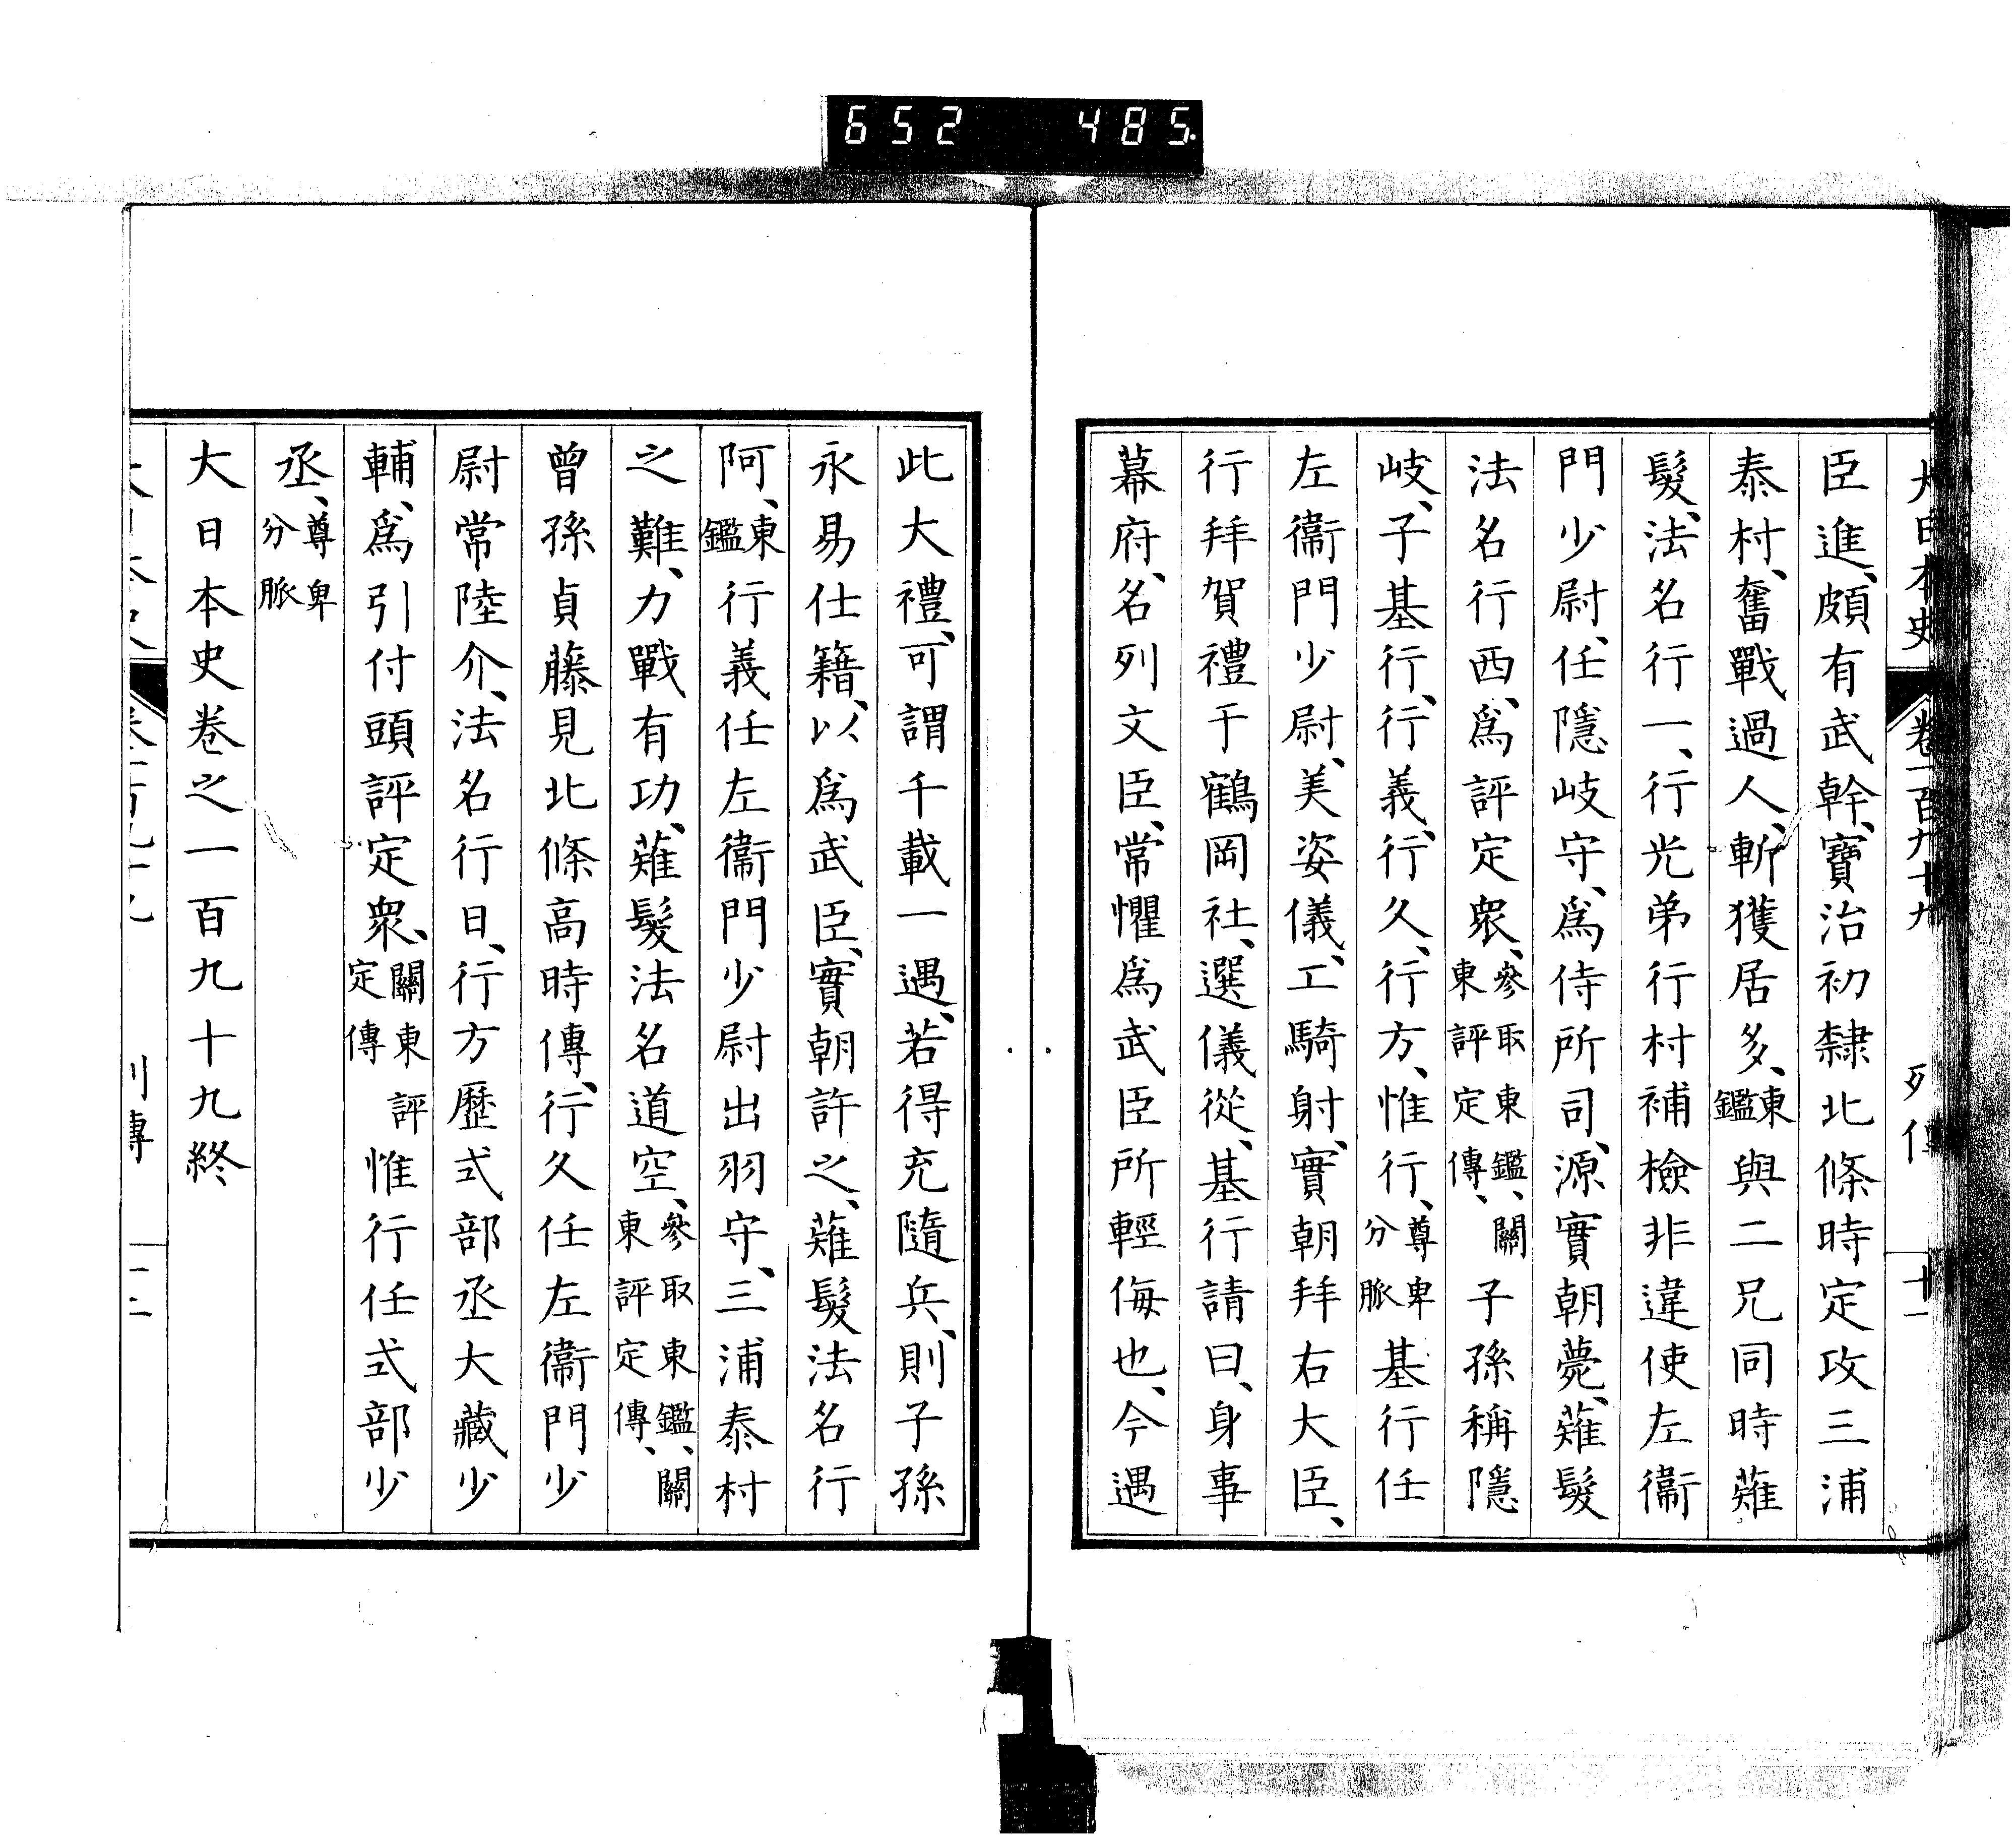 652 485
大日本史 卷一百九十九 列傳 十一
臣進、頗有武幹、寶治初隸北條時定攻三浦
泰村、奮戰過人、斬獲居多、東鑑與二兄同時薙
髮、法名行一、行光弟行村補檢非違使左衞
門少尉、任隱岐守、爲侍所司、源實朝薨、薙髮
法名行西、爲評定衆、參取東鑑、關東評定傳、子孫稱隱
岐、子基行、行義、行久、行方、惟行、尊卑分脈基行任
左衞門少尉、美姿儀、工騎射、實朝拜右大臣、
行拜賀禮于鶴岡社、選儀從、基行請曰、身事
幕府、名列文臣、常懼爲武臣所輕侮也、今遇
此大禮、可謂千載一遇、若得充隨兵、則子孫
永易仕籍、以爲武臣、實朝許之、薙髮法名行
阿、東鑑行義任左衞門少尉出羽守、三浦泰村
之難、力戰有功、薙髮法名道空、參取東鑑、關東評定傳、
曾孫貞藤見北條高時傳、行久任左衞門少
尉常陸介、法名行日、行方歷式部丞大藏少
輔、爲引付頭評定衆、關東評定傳惟行任式部少
丞、尊卑分脈
大日本史卷之一百九十九終